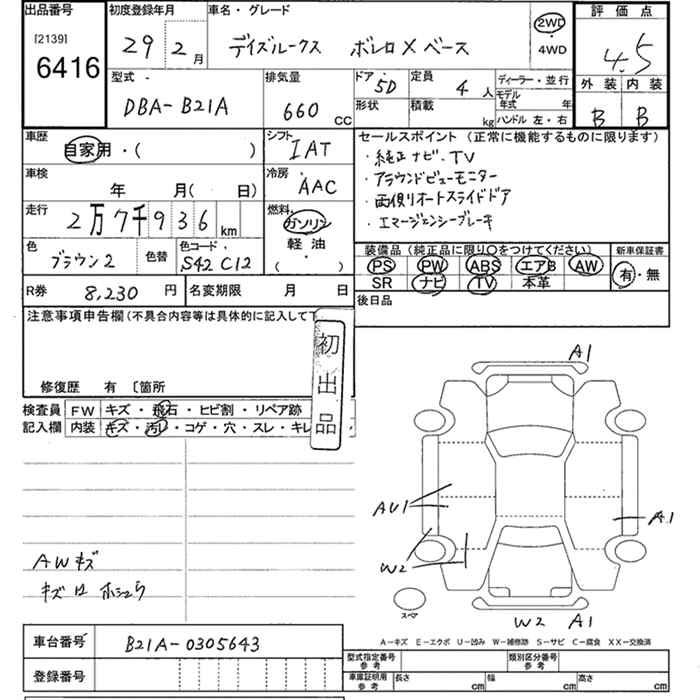 出品番号 初度登録年月 車名・グレード 評価点
[2139] 29 2月 デイズルークス ボレロX ベース 2WD・4WD 4.5
6416
型式 排気量 ドア 5D 定員 4人 ディーラー・並行 外装 内装
DBA-B21A 660 CC 形状 積載 kg モデル年式 年 B B
ハンドル 左・右
車歴 シフト セールスポイント (正常に機能するものに限ります)
自家用・( ) IAT ・純正ナビ.TV
車検 冷房 ・アラウンドビューモニター
年 月( 日) AAC ・両側リオートスライドドア
走行 燃料 ・エマージェンシーブレーキ
2万7千936km ガソリン
軽油・( )
色 色替 色コード 装備品 (純正品に限り○をつけてください) 新車保証書
ブラウン2 S42 C12 PS PW ABS エアB AW 有・無
SR ナビ TV 本革
R券 8,230円 名変期限 月 日 後日品
注意事項申告欄(不具合内容等は具体的に記入して下
初出品
修復歴 有 〔箇所
検査員 FW キズ・飛石・ヒビ割・リペア跡
記入欄 内装 キズ・汚レ・コゲ・穴・スレ・キレ
A1
AU1
A1
W2
AWキズ
スペア
W2 A1
A-キズ E-エクボ U-凹み W-補修跡 S-サビ C-腐食 XX-交換済
車台番号 B21A-0305643
登録番号
型式指定番号 参考 類別区分番号 参考
車庫証明用 参考 長さ cm 幅 cm 高さ cm